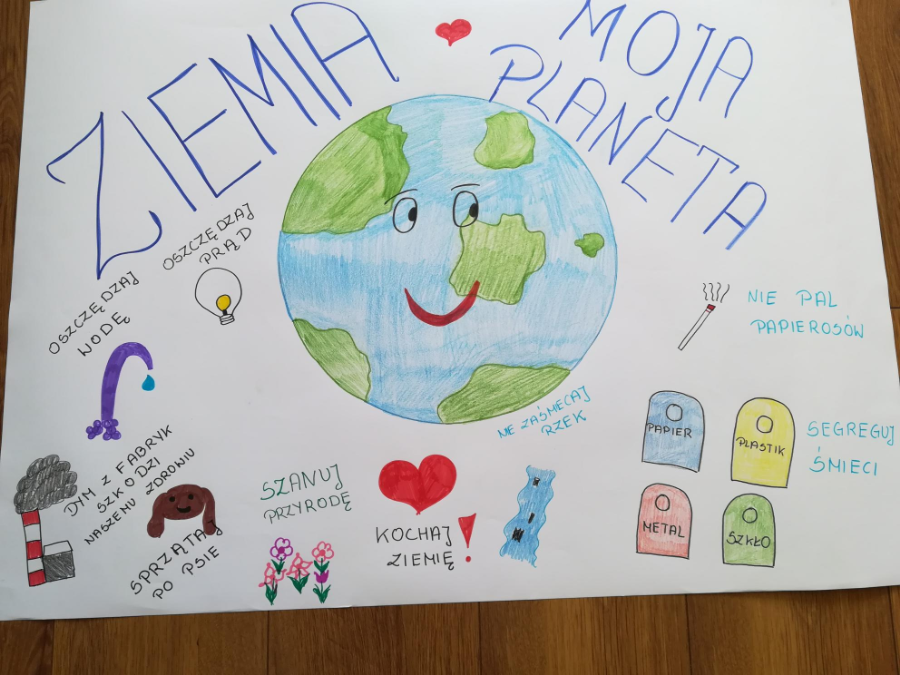 ZIEMIA
MOJA
PLANETA
OSZCZĘDZAJ
PRĄD
OSZCZĘDZAJ
WODĘ
NIE PAL
PAPIEROSÓW
NIE ZAŚMIECAJ
RZEK
PAPIER
PLASTIK
METAL
SZKŁO
SEGREGUJ
ŚMIECI
DYM Z FABRYK
SZKODZI
NASZEMU ZDROWIU
SPRZĄTAJ
PO PSIE
SZANUJ
PRZYRODĘ
KOCHAJ
ZIEMIĘ!